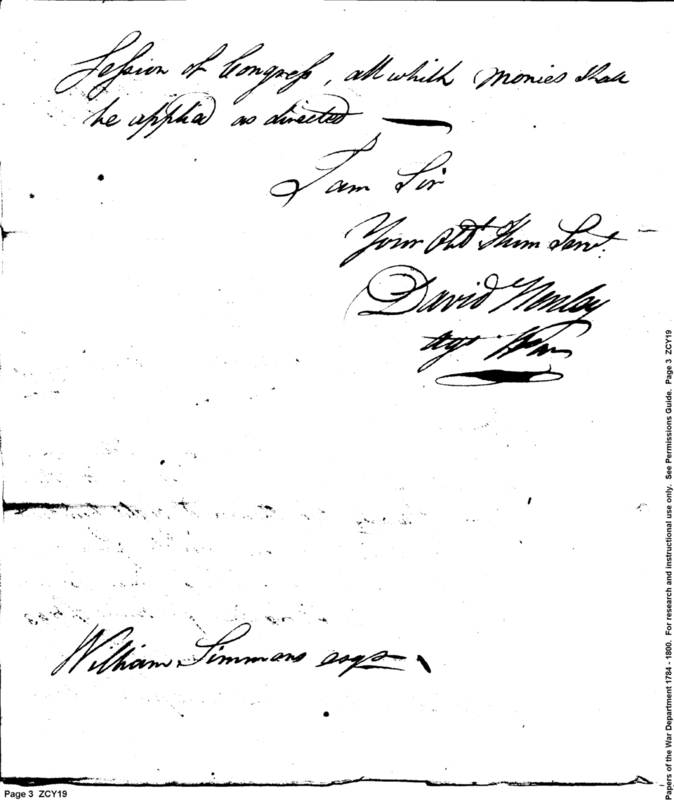 Session of Congress, all which Monies shall
be applied as directed —
I am Sir
Your Obt Hum Servt.
David Henley
Agt War
William Simmons esqr
Papers of the War Department 1784 - 1800. For research and instructional use only. See Permissions Guide. Page 3 ZCY19
Page 3 ZCY19